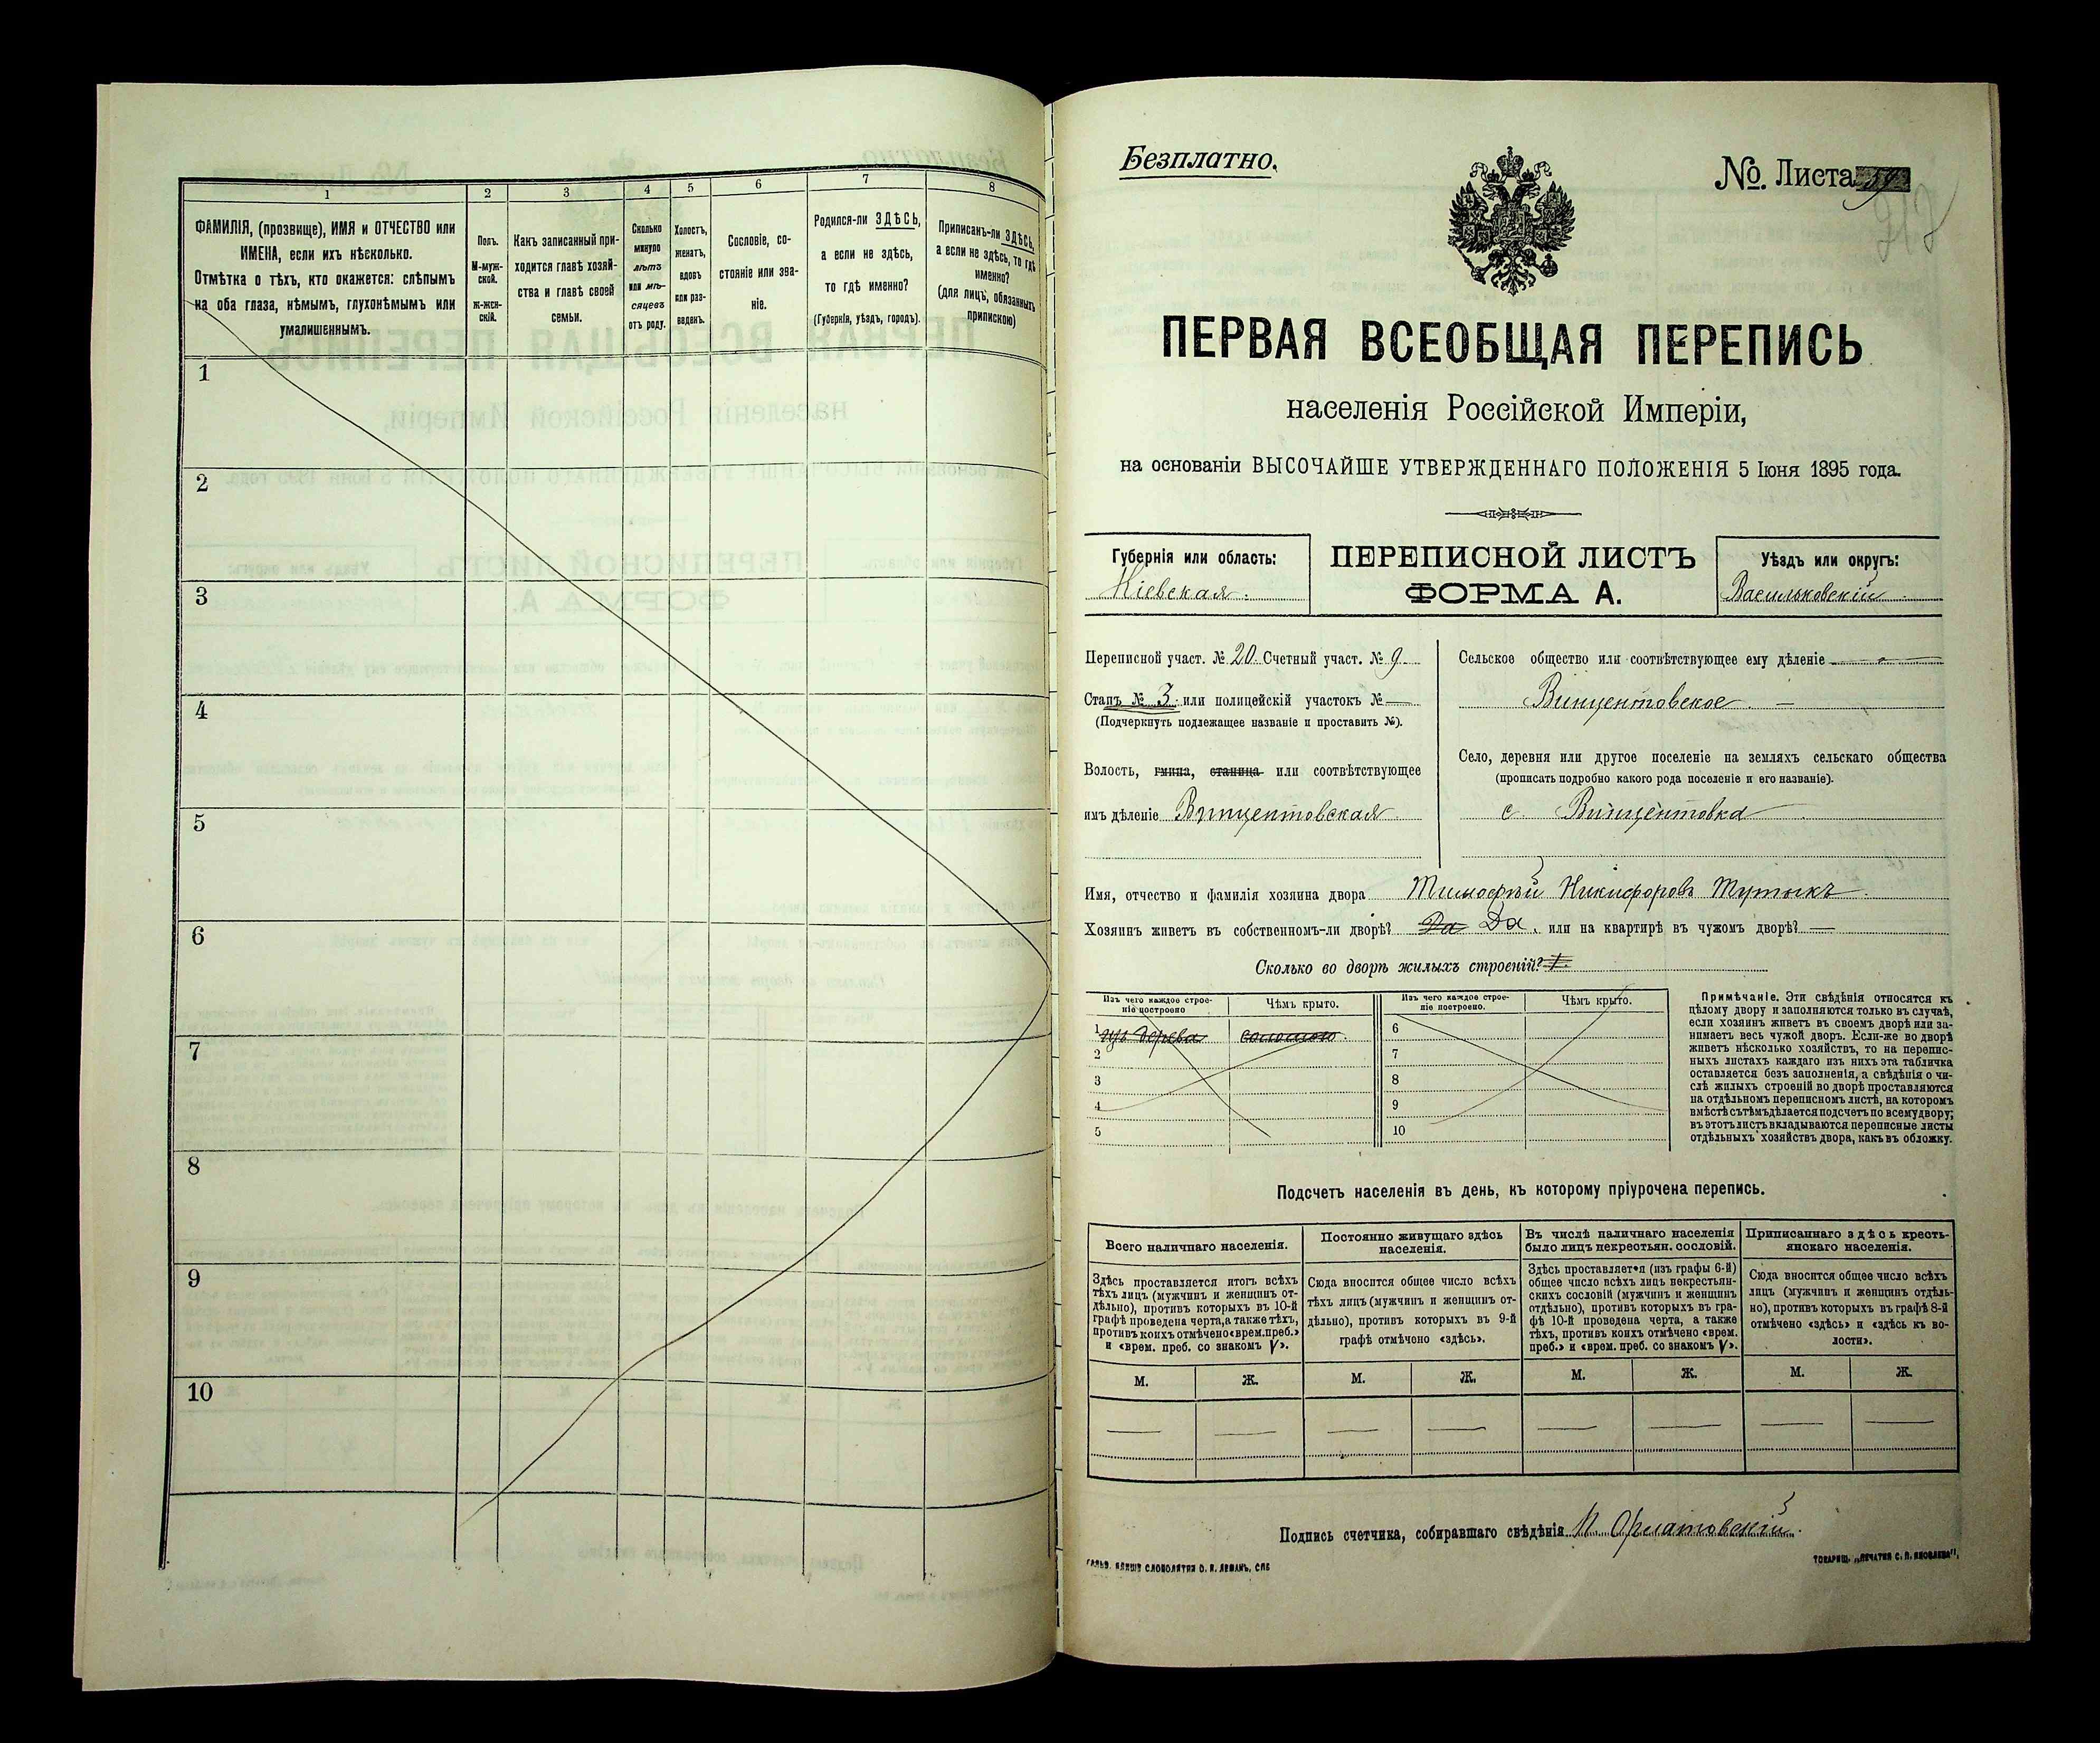 1 2 3 4 5 6 7 8
ФАМИЛІЯ, (прозвище), ИМЯ и ОТЧЕСТВО или
ИМЕНА, если ихъ нѣсколько.
Отмѣтка о тѣхъ, кто окажется: слѣпымъ
на оба глаза, нѣмымъ, глухонѣмымъ или
умалишеннымъ.
Полъ.
М-муж-
ской.
Ж-жен-
скій.
Какъ записанный при-
ходится главѣ хозяй-
ства и главѣ своей
семьи.
Сколько
минуло
лѣтъ
или мѣ-
сяцевъ
отъ роду.
Холостъ,
женатъ,
вдовъ
или раз-
веденъ.
Сословіе, со-
стояніе или зва-
ніе.
Родился-ли ЗДѢСЬ,
а если не здѣсь,
то гдѣ именно?
(Губернія, уѣздъ, городъ).
Приписанъ-ли ЗДѢСЬ,
а если не здѣсь, то гдѣ
именно?
(для лицъ, обязанныхъ
припискою)
1
2
3
4
5
6
7
8
9
10
Безплатно.
№. Листа
ПЕРВАЯ ВСЕОБЩАЯ ПЕРЕПИСЬ
населенія Россійской Имперіи,
на основаніи ВЫСОЧАЙШЕ УТВЕРЖДЕННАГО ПОЛОЖЕНІЯ 5 Іюня 1895 года.
Губернія или область:
Кіевская
ПЕРЕПИСНОЙ ЛИСТЪ
ФОРМА А.
Уѣздъ или округъ:
Васильковскій
Переписной участ. № 20 Счетный участ. № 9
Станъ № 3 или полицейскій участокъ № —
(Подчеркнуть подлежащее названіе и проставить №).
Волость, гмина, станица или соотвѣтствующее
имъ дѣленіе Винцентовская
Сельское общество или соотвѣтствующее ему дѣленіе
Винцентовское —
Село, деревня или другое поселеніе на земляхъ сельскаго общества
(прописать подробно какого рода поселеніе и его названіе).
с. Винцентовка
Имя, отчество и фамилія хозяина двора Тимофѣй Никифоровъ Тутыкъ
Хозяинъ живетъ въ собственномъ-ли дворѣ? Да Да, или на квартирѣ въ чужомъ дворѣ? —
Сколько во дворѣ жилыхъ строеній? 1.
Изъ чего каждое строе-
ніе построено
Чѣмъ крыто.
1 изъ дерева соломою
2
3
4
5
Изъ чего каждое строе-
ніе построено.
Чѣмъ крыто.
6
7
8
9
10
Примѣчаніе. Эти свѣдѣнія относятся къ
цѣлому двору и заполняются только въ случаѣ,
если хозяинъ живетъ въ своемъ дворѣ или за-
нимаетъ весь чужой дворъ. Если-же во дворѣ
живетъ нѣсколько хозяйствъ, то на перепис-
ныхъ листахъ каждаго изъ нихъ эта табличка
оставляется безъ заполненія, а свѣдѣнія о чи-
слѣ жилыхъ строеній во дворѣ проставляются
на отдѣльномъ переписномъ листѣ, на которомъ
вмѣстѣ съ тѣмъ дѣлается подсчетъ по всему двору;
въ этотъ листъ вкладываются переписные листы
отдѣльныхъ хозяйствъ двора, какъ въ обложку.
Подсчетъ населенія въ день, къ которому пріурочена перепись.
Всего наличнаго населенія.
Здѣсь проставляется итогъ всѣхъ
тѣхъ лицъ (мужчинъ и женщинъ от-
дѣльно), противъ которыхъ въ 10-й
графѣ проведена черта, а также тѣхъ,
противъ коихъ отмѣчено «врем. преб.»
и «врем. преб. со знакомъ V».
Постоянно живущаго здѣсь
населенія.
Сюда вносится общее число всѣхъ
тѣхъ лицъ (мужчинъ и женщинъ от-
дѣльно), противъ которыхъ въ 9-й
графѣ отмѣчено «здѣсь».
Въ числѣ наличнаго населенія
было лицъ некрестьян. сословій.
Здѣсь проставляется (изъ графы 6-й)
общее число всѣхъ лицъ некрестьян-
скихъ сословій (мужчинъ и женщинъ
отдѣльно), противъ которыхъ въ гра-
фѣ 10-й проведена черта, а также
тѣхъ, противъ коихъ отмѣчено «врем.
преб.» и «врем. преб. со знакомъ V».
Приписаннаго здѣсь кресть-
янскаго населенія.
Сюда вносится общее число всѣхъ
лицъ (мужчинъ и женщинъ отдѣль-
но), противъ которыхъ въ графѣ 8-й
отмѣчено «здѣсь» и «здѣсь къ во-
лости».
М. Ж. М. Ж. М. Ж. М. Ж.
— — — — — — — —
Подпись счетчика, собиравшаго свѣдѣнія
СЛОВОЛИТНЯ О. И. ЛЕМАНЪ, СПБ
ТОВАРИЩ. „ПЕЧАТНЯ С. П. ЯКОВЛЕВА",